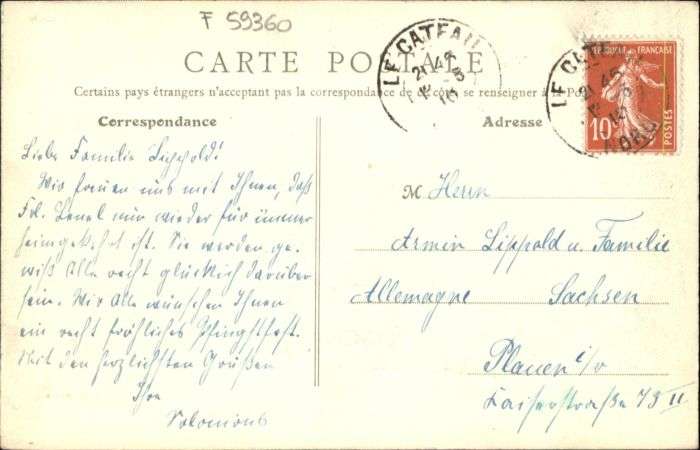 F 59360
CARTE POSTALE
Certains pays étrangers n'acceptant pas la correspondance de ce côté, se renseigner à la Poste
Correspondance
Liebe Familie Lippold!
Wir freuen uns mit Ihnen, daß
Frl. nur wieder für immer
heimgekehrt ist. Sie werden ge-
wiß Alle recht glücklich darüber
sein. Wir Alle wünschen Ihnen
ein recht fröhliches Pfingstfest.
Mit den herzlichsten Grüßen
Ihre
Salomons
Adresse
M Herrn
Armin Lippold u. Familie
Allemagne Sachsen
Plauen i/V
Kaiserstraße 75 II
LE CATEAU
21 45
NORD
LE CATEAU
21 45
REPUBLIQUE FRANÇAISE
10
POSTES